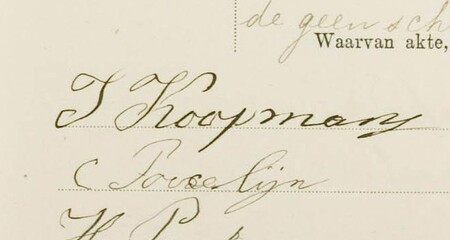 de geen sch
Waarvan akte,
J Koopman
C Porcelijn
H P